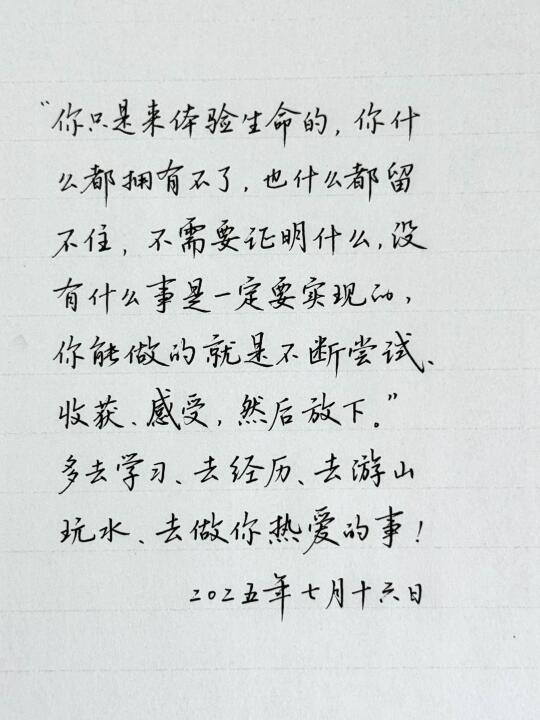 “你只是来体验生命的，你什
么都拥有不了，也什么都留
不住，不需要证明什么，没
有什么事是一定要实现的，
你能做的就是不断尝试、
收获、感受，然后放下。”
多去学习、去经历、去游山
玩水、去做你热爱的事！
二〇二五年七月十六日